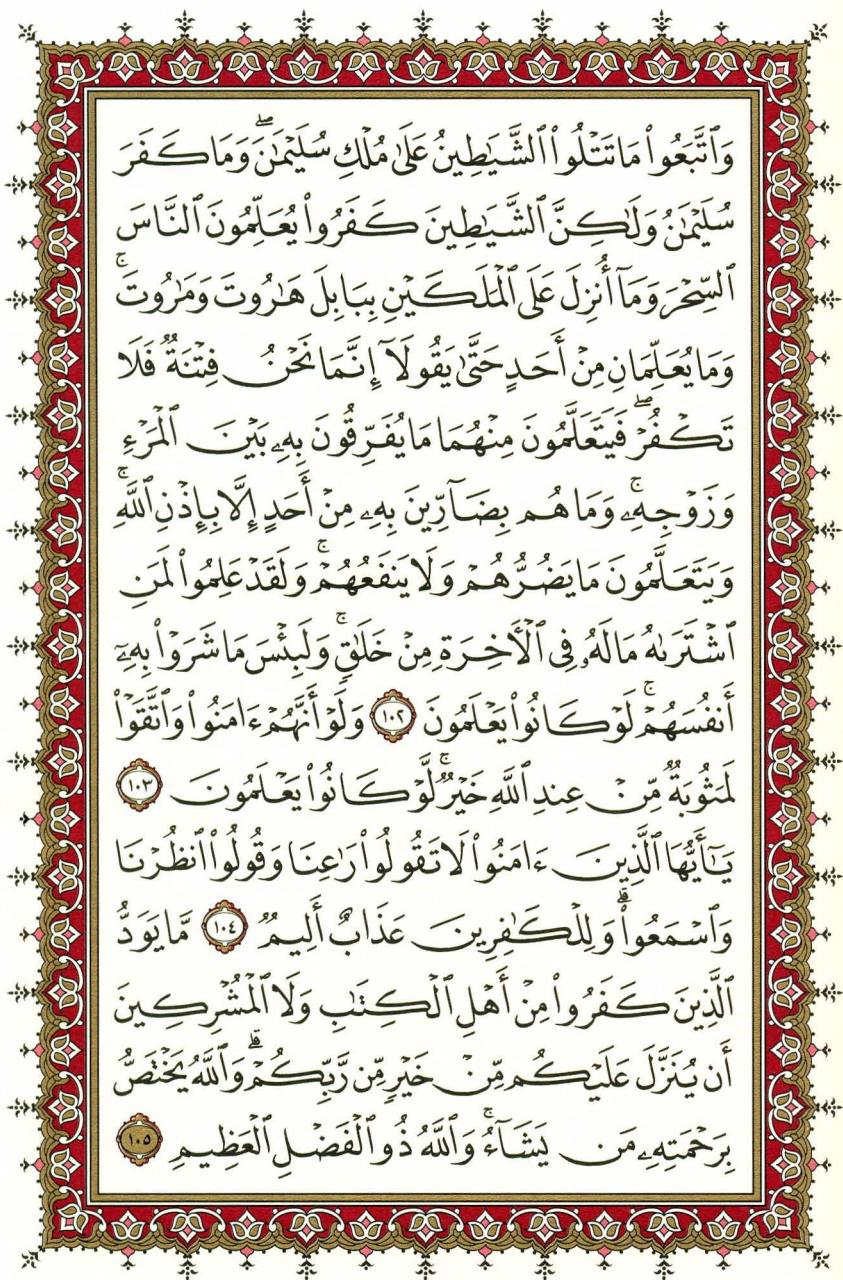 وَٱتَّبَعُوا۟ مَا تَتْلُوا۟ ٱلشَّيَـٰطِينُ عَلَىٰ مُلْكِ سُلَيْمَـٰنَ ۖ وَمَا كَفَرَ
سُلَيْمَـٰنُ وَلَـٰكِنَّ ٱلشَّيَـٰطِينَ كَفَرُوا۟ يُعَلِّمُونَ ٱلنَّاسَ
ٱلسِّحْرَ وَمَآ أُنزِلَ عَلَى ٱلْمَلَكَيْنِ بِبَابِلَ هَـٰرُوتَ وَمَـٰرُوتَ ۚ
وَمَا يُعَلِّمَانِ مِنْ أَحَدٍ حَتَّىٰ يَقُولَآ إِنَّمَا نَحْنُ فِتْنَةٌ فَلَا
تَكْفُرْ ۖ فَيَتَعَلَّمُونَ مِنْهُمَا مَا يُفَرِّقُونَ بِهِۦ بَيْنَ ٱلْمَرْءِ
وَزَوْجِهِۦ ۚ وَمَا هُم بِضَآرِّينَ بِهِۦ مِنْ أَحَدٍ إِلَّا بِإِذْنِ ٱللَّهِ ۚ
وَيَتَعَلَّمُونَ مَا يَضُرُّهُمْ وَلَا يَنفَعُهُمْ ۚ وَلَقَدْ عَلِمُوا۟ لَمَنِ
ٱشْتَرَىٰهُ مَا لَهُۥ فِى ٱلْـَٔاخِرَةِ مِنْ خَلَـٰقٍ ۚ وَلَبِئْسَ مَا شَرَوْا۟ بِهِۦٓ
أَنفُسَهُمْ ۚ لَوْ كَانُوا۟ يَعْلَمُونَ ١٠٢ وَلَوْ أَنَّهُمْ ءَامَنُوا۟ وَٱتَّقَوْا۟
لَمَثُوبَةٌ مِّنْ عِندِ ٱللَّهِ خَيْرٌ ۖ لَّوْ كَانُوا۟ يَعْلَمُونَ ١٠٣
يَـٰٓأَيُّهَا ٱلَّذِينَ ءَامَنُوا۟ لَا تَقُولُوا۟ رَٰعِنَا وَقُولُوا۟ ٱنظُرْنَا
وَٱسْمَعُوا۟ ۗ وَلِلْكَـٰفِرِينَ عَذَابٌ أَلِيمٌ ١٠٤ مَّا يَوَدُّ
ٱلَّذِينَ كَفَرُوا۟ مِنْ أَهْلِ ٱلْكِتَـٰبِ وَلَا ٱلْمُشْرِكِينَ
أَن يُنَزَّلَ عَلَيْكُم مِّنْ خَيْرٍ مِّن رَّبِّكُمْ ۗ وَٱللَّهُ يَخْتَصُّ
بِرَحْمَتِهِۦ مَن يَشَآءُ ۚ وَٱللَّهُ ذُو ٱلْفَضْلِ ٱلْعَظِيمِ ١٠٥